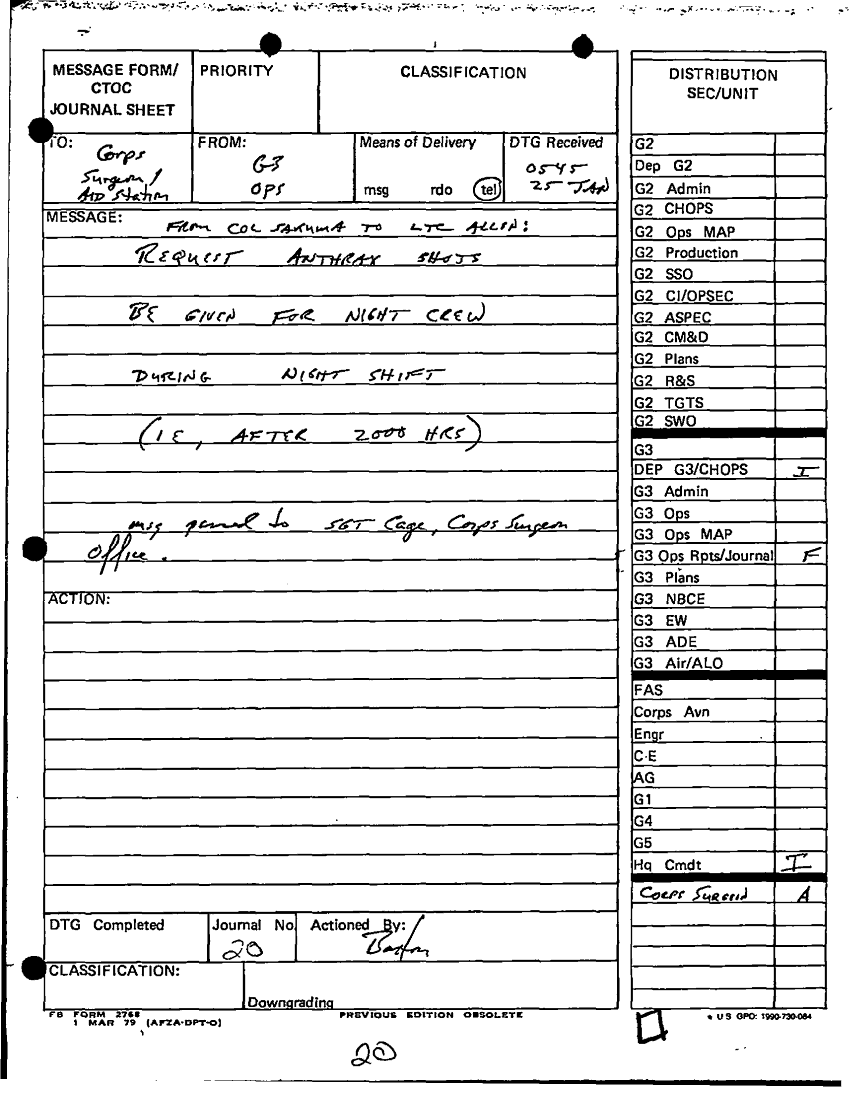 MESSAGE FORM/
CTOC
JOURNAL SHEET
PRIORITY
CLASSIFICATION
TO:
Corps
Surgeon/
AID Station
FROM:
G3
OPS
Means of Delivery
msg rdo tel
DTG Received
0545
25 JAN
MESSAGE:
FROM COL SAKUMA TO LTC ALLEN:
REQUEST ANTHRAX SHOTS
BE GIVEN FOR NIGHT CREW
DURING NIGHT SHIFT
(IE, AFTER 2000 HRS)
msg passed to SGT Cage, Corps Surgeon
Office.
ACTION:
DTG Completed
Journal No.
20
Actioned By:
CLASSIFICATION:
Downgrading
FB FORM 2768
1 MAR 79 (AFZA-DPT-O)
PREVIOUS EDITION OBSOLETE
20
DISTRIBUTION
SEC/UNIT
G2
Dep G2
G2 Admin
G2 CHOPS
G2 Ops MAP
G2 Production
G2 SSO
G2 CI/OPSEC
G2 ASPEC
G2 CM&D
G2 Plans
G2 R&S
G2 TGTS
G2 SWO
G3
DEP G3/CHOPS I
G3 Admin
G3 Ops
G3 Ops MAP
G3 Ops Rpts/Journal F
G3 Plans
G3 NBCE
G3 EW
G3 ADE
G3 Air/ALO
FAS
Corps Avn
Engr
C-E
AG
G1
G4
G5
Hq Cmdt I
CORPS SURGEON A
* U S GPO: 1990-730-084